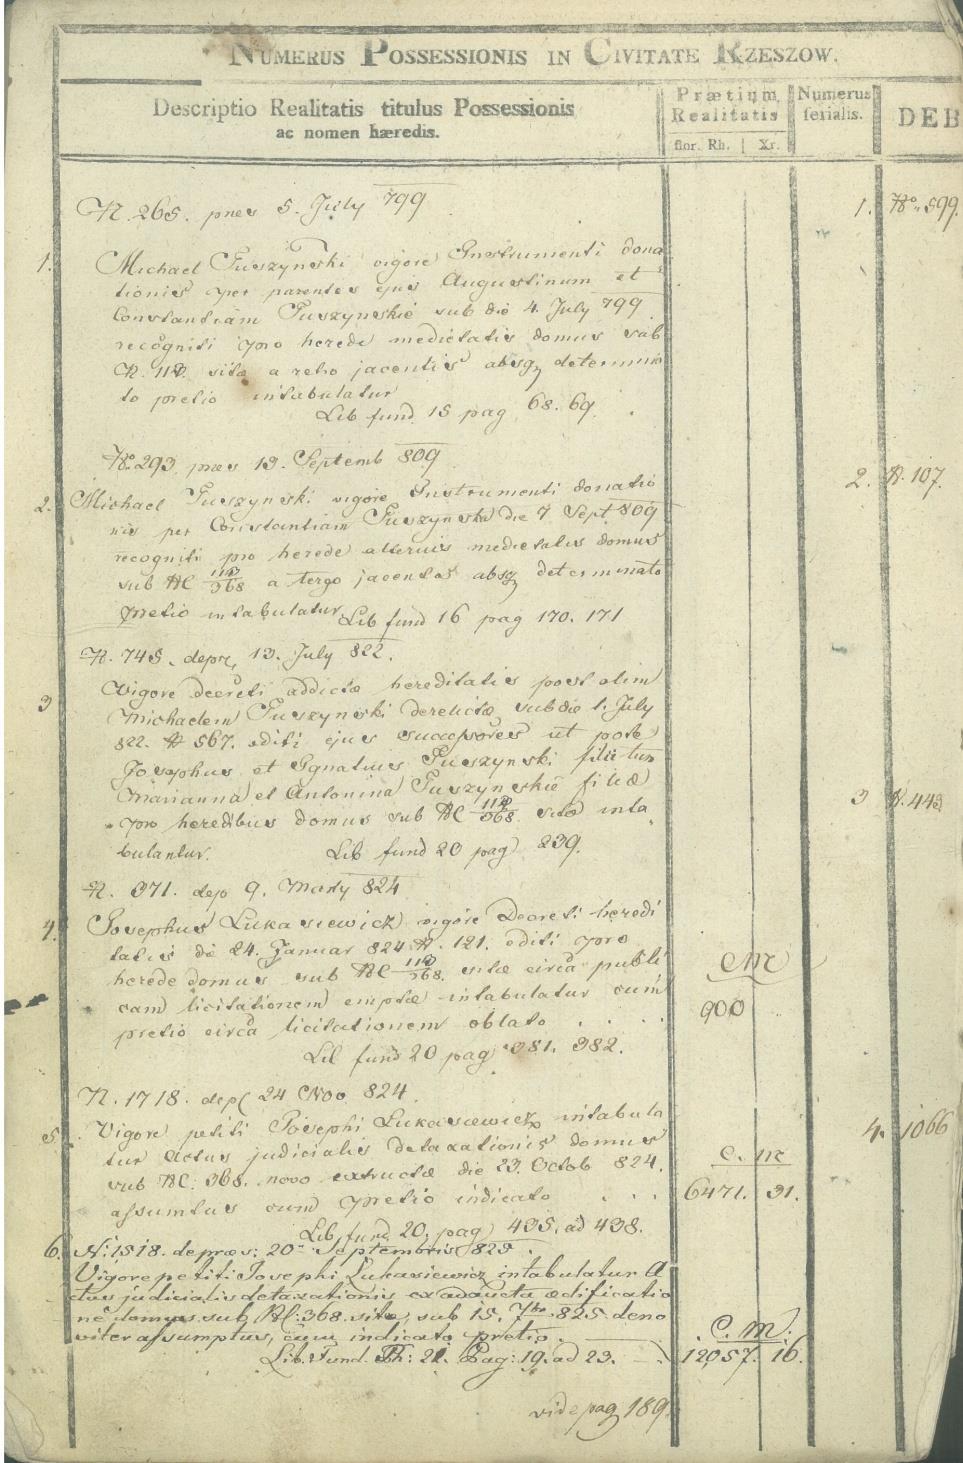 NUMERUS POSSESSIONIS IN CIVITATE RZESZOW.
Descriptio Realitatis titulus Possessionis
ac nomen hæredis.
Prætium
Realitatis
flor. Rh. Xr.
Numerus
serialis.
DEB
N. 265. pnes 5. July 799
1. No. 599.
1. Michael Tuszynski vigore Instrumenti dona
tionis per parentes ejus Augustinum et
Constantiam Tuszynskie sub die 4. July 799
recogniti pro herede medietatis domus sub
N. 112. sitæ a retro jacentis absq determina
to pretio intabulatur
Lib fund 15 pag 68. 69.
No. 293 pnes 13. Septemb 809
2. N. 107.
2. Michael Tuszynski vigore Instrumenti donatio
nis per Constantiam Tuszynska die 7 Sept 809
recogniti pro herede alterius medietatis domus
sub NC 112/368 a tergo jacentis absq determinato
pretio intabulatur Lib fund 16 pag 170. 171
N. 745. depr, 13. July 822.
3 Vigore decreti addictæ hereditatis post olim
Michaelem Tuszynski derelictæ sub die 1. July
822. N 567. editi ejus successores ut pote
Josephus et Ignatius Tuszynski filii tum
Marianna et Antonina Tuszynskie filiæ
3 N. 443
pro heredibus domus sub NC 112/368. sitæ inta
bulantur. Lib fund 20 pag 239.
N. 371. dep 9. Marty 824
4. Josephus Lukasiewicz vigore Decreti heredi
tatis de 24. Januar 824 N. 121. editi pro
herede domus sub NC 112/368. sitæ circa publi
cam licitationem emptæ intabulatur cum
pretio circa licitationem oblato . . . .
CM
900
Lib fund 20 pag 381. 382.
N. 1718. dep 24 Nov 824.
5. Vigore petiti Josephi Lukasiewicz intabula
tur actus judicialis detaxationis domus
sub NC: 368. novo extructæ die 23. Octob 824.
assumtus cum pretio indicato . . .
4. 1066
C. M
6471. 31.
Lib. fund 20. pag 435. ad 438.
6. N: 1518. de præs: 20 Septembris 825.
Vigore petiti Josephi Lukasiewicz intabulatur A
ctus judicialis detaxationis ex adaucta ædificatio
ne domus sub NC: 368. sitæ, sub 15. 7br 825. deno
viter assumptus, cum indicato pretio.
C. M.
12057. 16.
Lib. Fund. Th: 21. Pag: 19. ad 23.
vide pag 189.